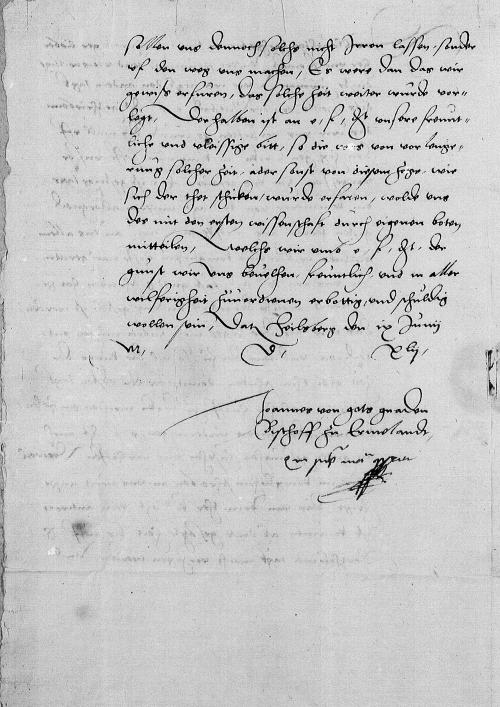 sollen uns dennoch solche nicht Irren lassen, sonder
uf den weg uns machen, Es were dan das wir
gewiss erfuren, das solche Zeit weiter wurde vor-
legt, Derhalben ist an e, f, dt unsere freunt-
liche und vleissige bitt, so die von vorlenge-
rung solcher Zeit, ader sonst von diesem Zoge, wie
sich der thet schicken, wurde erfaren, wolde uns
des mit den ersten wissenschaft durch eigenen boten
mitteilen, welchs wir umb e, f, dt, der
gunst wir uns bevelhen, freuntlich und in aller
wilferigkeit zuverdienen erbottig, und schuldig
wollen sein, Dat Heilsberg den ix Junii
M, D, xlij,
Joannes von gots gnaden
Bischoff zu Ermelandt